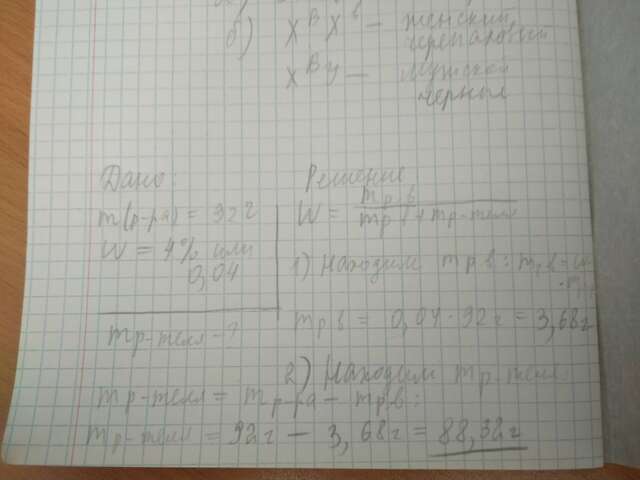 б) X^B X^b — женский черепаховый
X^B y — мужской черный
Дано:
m(р-ра) = 92 г
W = 4% или
0,04
mр-теля - ?
Решение
W = mр.в / mр.в + mр-теля
1) Находим mр.в :
mр.в = 0,04 · 92 г = 3,68 г
2) Находим mр-теля
mр-теля = mр-ра — mр.в :
mр-теля = 92 г — 3,68 г = 88,32 г